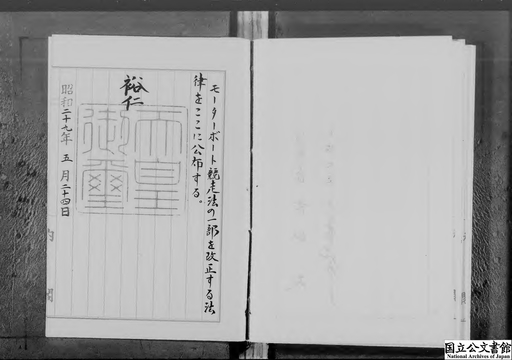 モーターボート競走法の一部を改正する法
律をここに公布する。
裕仁
天皇
御璽
昭和二十九年五月二十四日
内閣
国立公文書館
National Archives of Japan